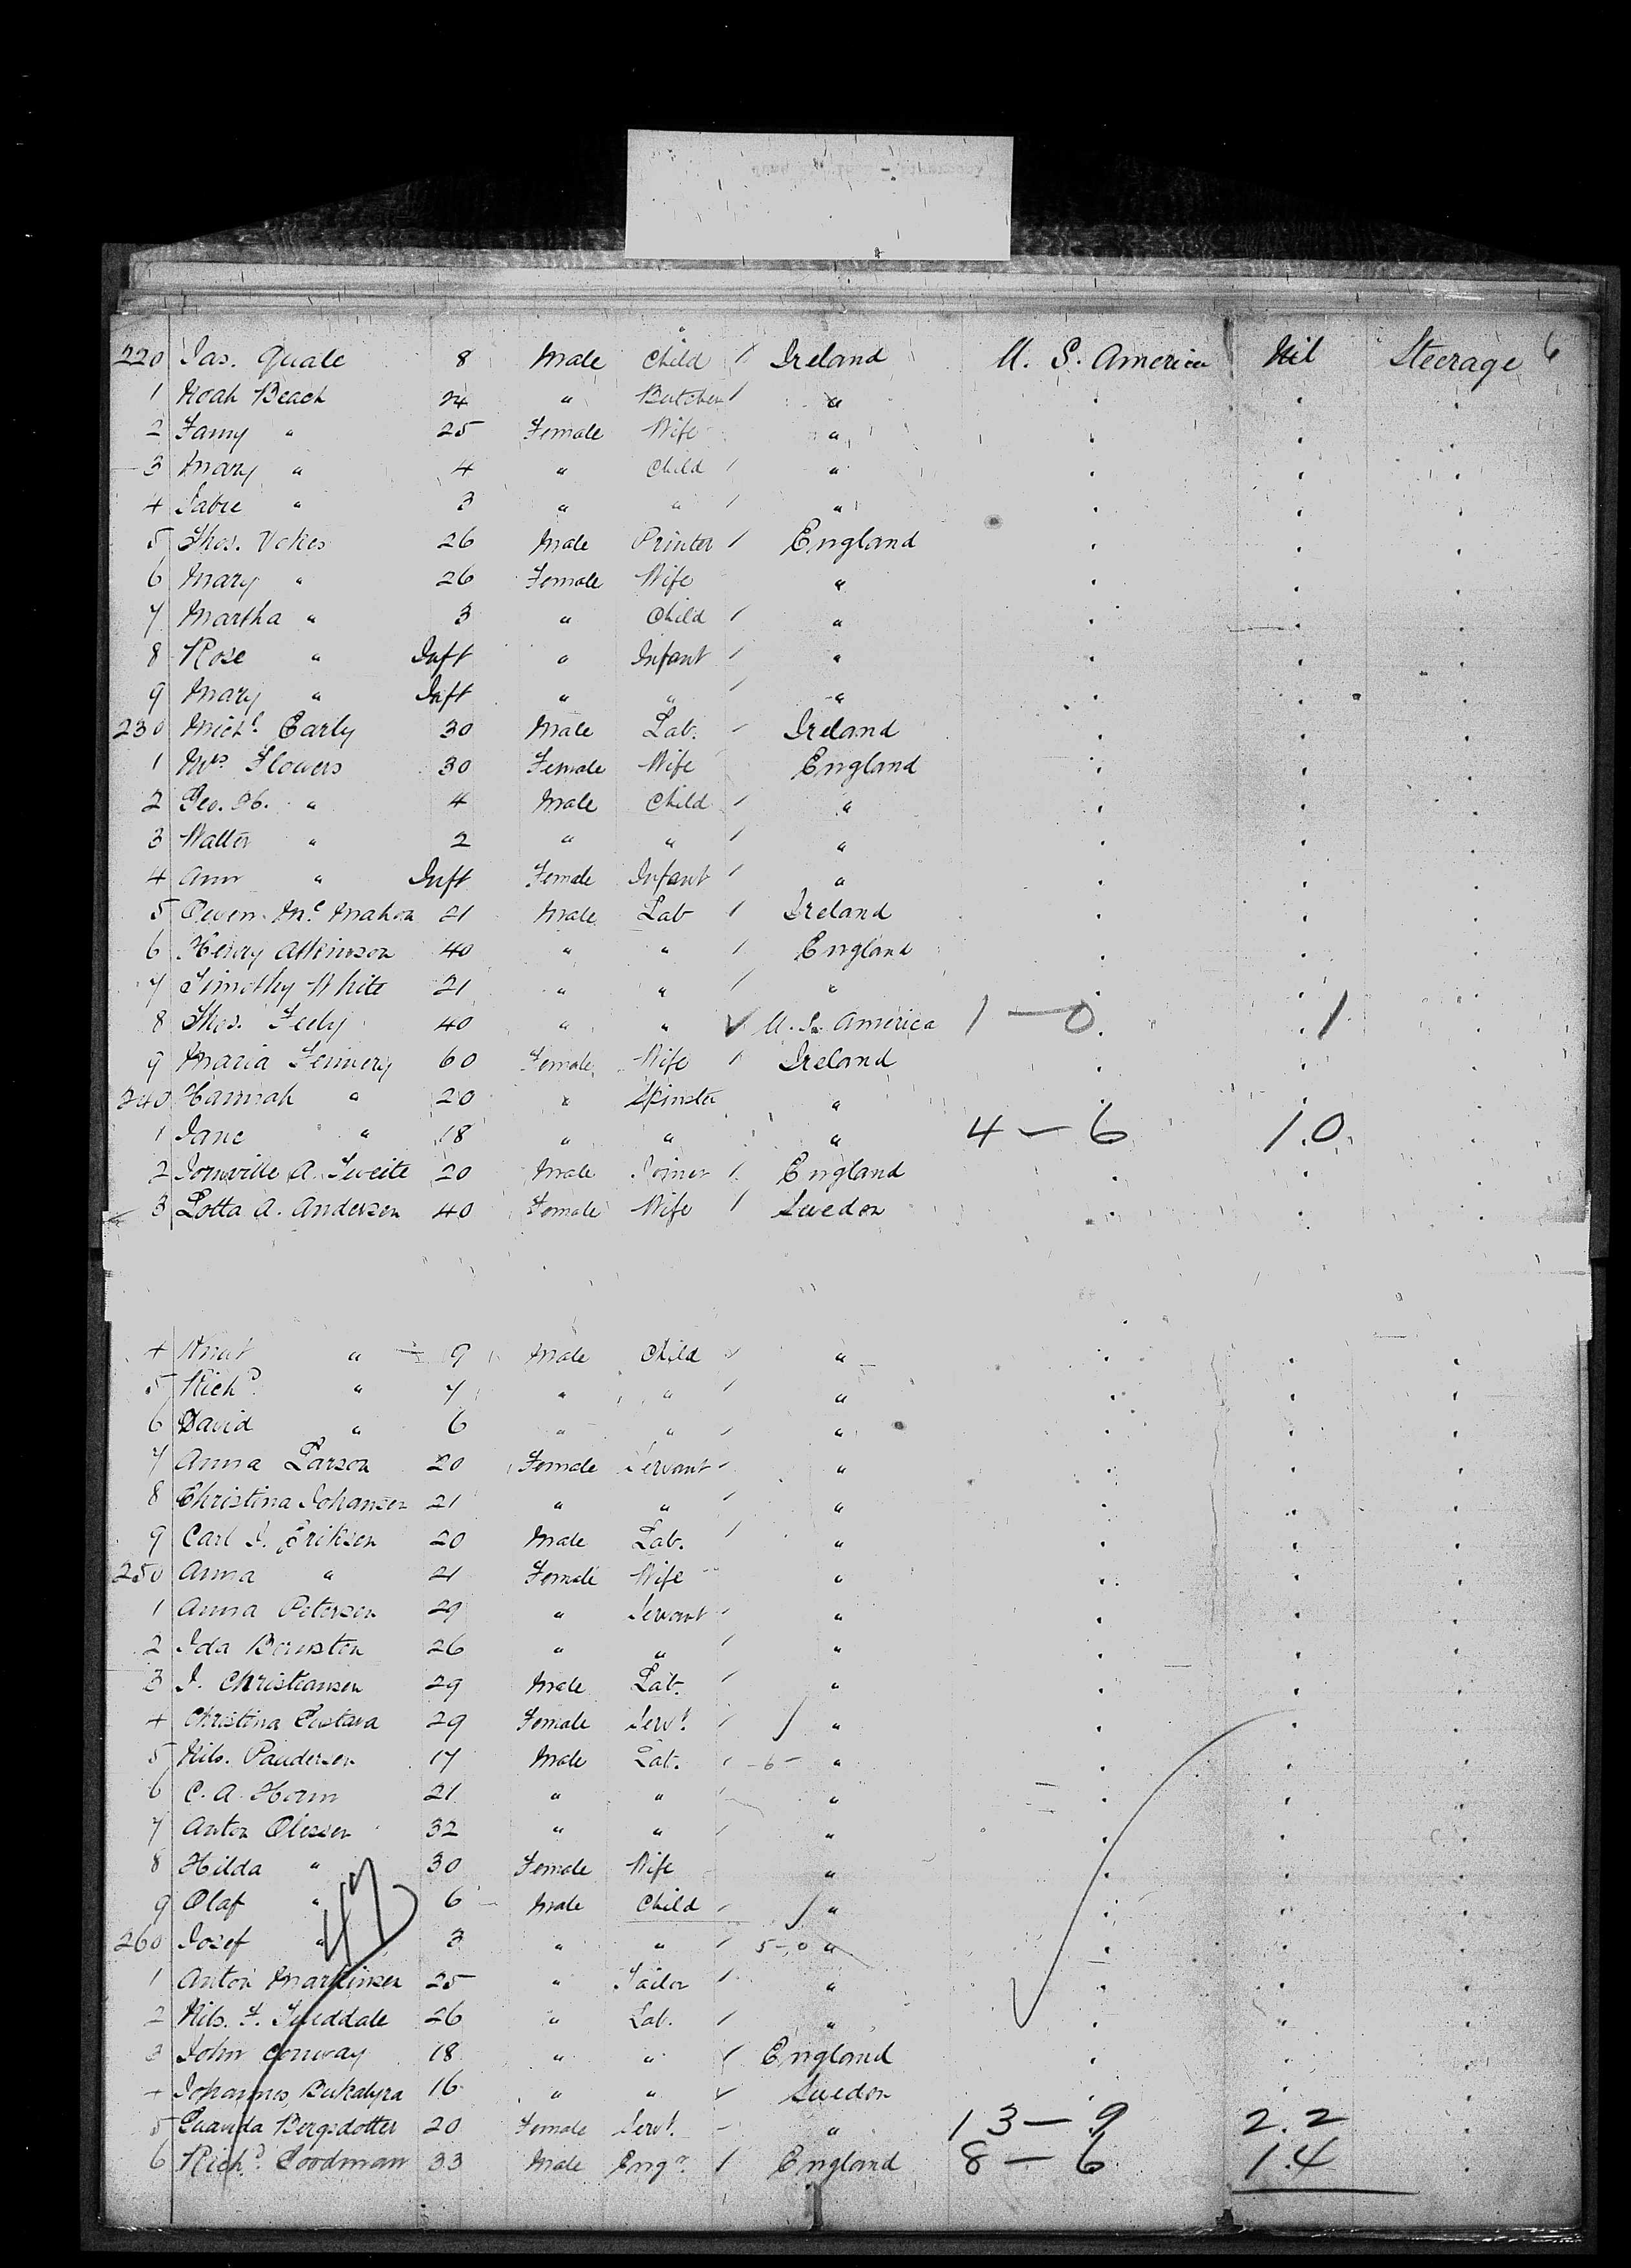 220 Jas. Quale 8 Male Child / Ireland U. S. America Nil Steerage 6
1 Noah Beach 24 " Butcher / "
2 Fanny " 25 Female Wife "
3 Mary " 4 " Child / "
4 " 3 " " / "
5 Thos. Vokes 26 Male Printer / England
6 Mary " 26 Female Wife "
7 Martha " 3 " Child / "
8 Rose " Inft " Infant / "
9 Mary " Inft " " / "
230 Michl. Early 30 Male Lab. Ireland
1 Mrs Flowers 30 Female Wife England
2 Geo. H. " 4 Male Child / "
3 Walter " 2 " " / "
4 Ann " Inft Female Infant / "
5 Owen McMahon 21 Male Lab / Ireland
6 Henry Atkinson 40 " " / England
7 Timothy White 21 " " / "
8 Thos. Feely 40 " " ✓ U.S. America 1 — 0 1
9 Maria 60 Female Wife / Ireland
240 Hannah " 20 " Spinster "
1 Jane " 18 " " " 4 — 6 1.0
2 A. 20 Male Joiner / England
3 Lotta A. Anderson 40 Female Wife / Sweden
4 Knut " 9 Male Child "
5 Richd. " 7 " " / "
6 David " 6 " " / "
7 Anna Larson 20 Female Servant "
8 Christina Johansen 21 " " / "
9 Carl J. Erikson 20 Male Lab. / "
250 Anna " 21 Female Wife "
1 Anna Peterson 29 " Servant "
2 Ida 26 " " / "
3 J. Christiansen 29 Male Lab. / "
4 Christina Gustava 29 Female Servt. / "
5 Nils. 17 Male Lab. -6- "
6 C. A. 21 " " "
7 Anton Olessen 32 " " / "
8 Hilda " 30 Female Wife "
9 Olaf " 6 Male Child / "
260 Josef " 3 " " / 5-0 "
1 Anton Martinsen 25 " Tailor / "
2 Nils. F. 26 " Lab. / "
3 John Conway 18 " " / England
4 Johannes 16 " " Sweden
5 Bergsdotter 20 Female Servt. — " 13 — 9 2.2
6 Richd. Goodman 33 Male Engr. / England 8 — 6 1.4